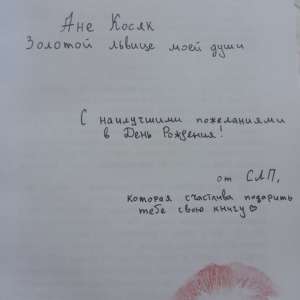 Ане Косяк
Золотой львице моей души
С наилучшими пожеланиями
в День Рождения!
от СЛП,
которая счастлива подарить
тебе свою книгу♡